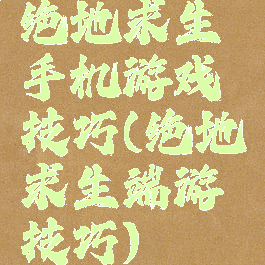 绝地求生
手机游戏
技巧(绝地
求生端游
技巧)